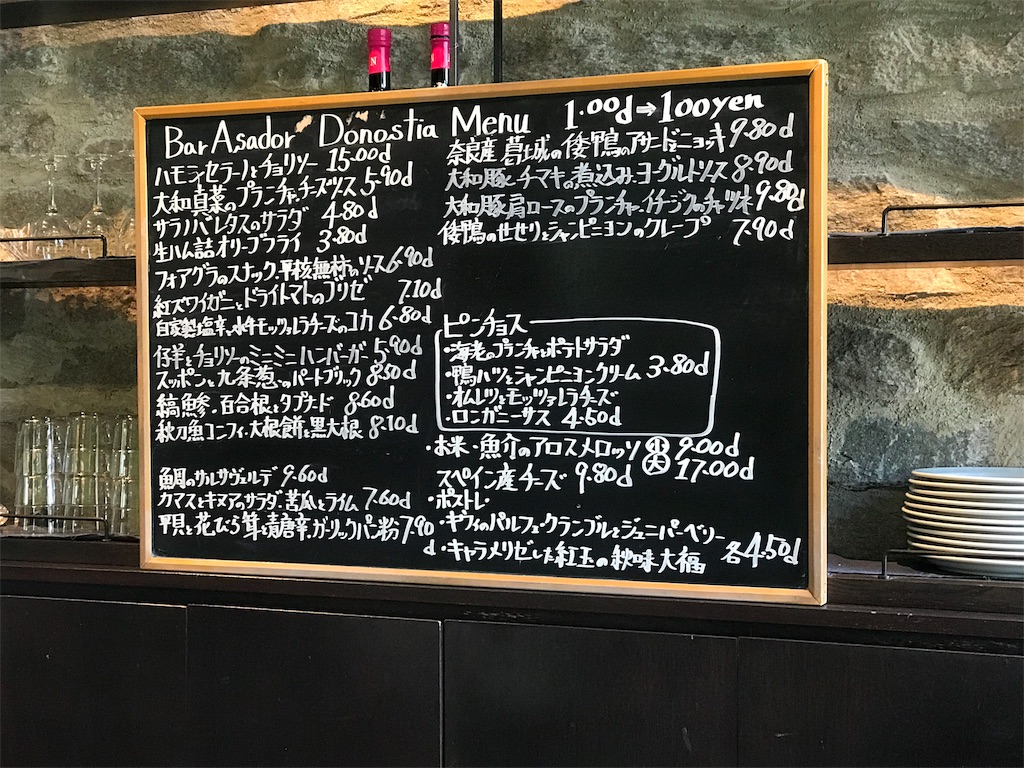 Bar Asador Donostia Menu 1.00d→100yen
ハモンセラーノとチョリソー 15.00d
大和真菜のプランチャ、チーズソース 5.90d
サラノバレタスのサラダ 4.80d
生ハム詰オリーブフライ 3.80d
フォアグラのスナック、平核無柿のソース 6.90d
紅ズワイガニとドライトマトのブリゼ 7.10d
自家製塩辛、水牛モッツァレラチーズのコカ 6.80d
仔羊とチョリソのミニミニハンバーガー 5.90d
スッポンと九条葱のパートブリック 8.50d
縞鯵・百合根とタプナード 8.60d
秋刀魚コンフィ・大根餅と黒大根 8.10d
鯛のサルサヴェルデ 9.60d
カマスとキヌアのサラダ、苦瓜とライム 7.60d
平貝と花びら茸と青唐辛、ガーリックパン粉 7.90d
奈良産 葛城の倭鴨のアサード、ニョッキ 9.80d
大和豚とチマキの煮込み、ヨーグルトソース 8.90d
大和豚肩ロースのプランチャ、イチジクのチャツネ 9.80d
倭鴨のせせりとシャンピニヨンのクレープ 7.90d
ピンチョス
・海老のプランチャとポテトサラダ
・鴨ハツとシャンピニヨンクリーム 3.80d
・オムレツとモッツァレラチーズ
・ロンガニーサス 4.50d
・お米・魚介のアロスメロッソ 小 9.00d
大 17.00d
スペイン産チーズ 9.80d
・ポストレ
・キウィのパルフェ・クランブルとジュニパーベリー
・キャラメリゼした紅玉の秋味大福 各4.50d